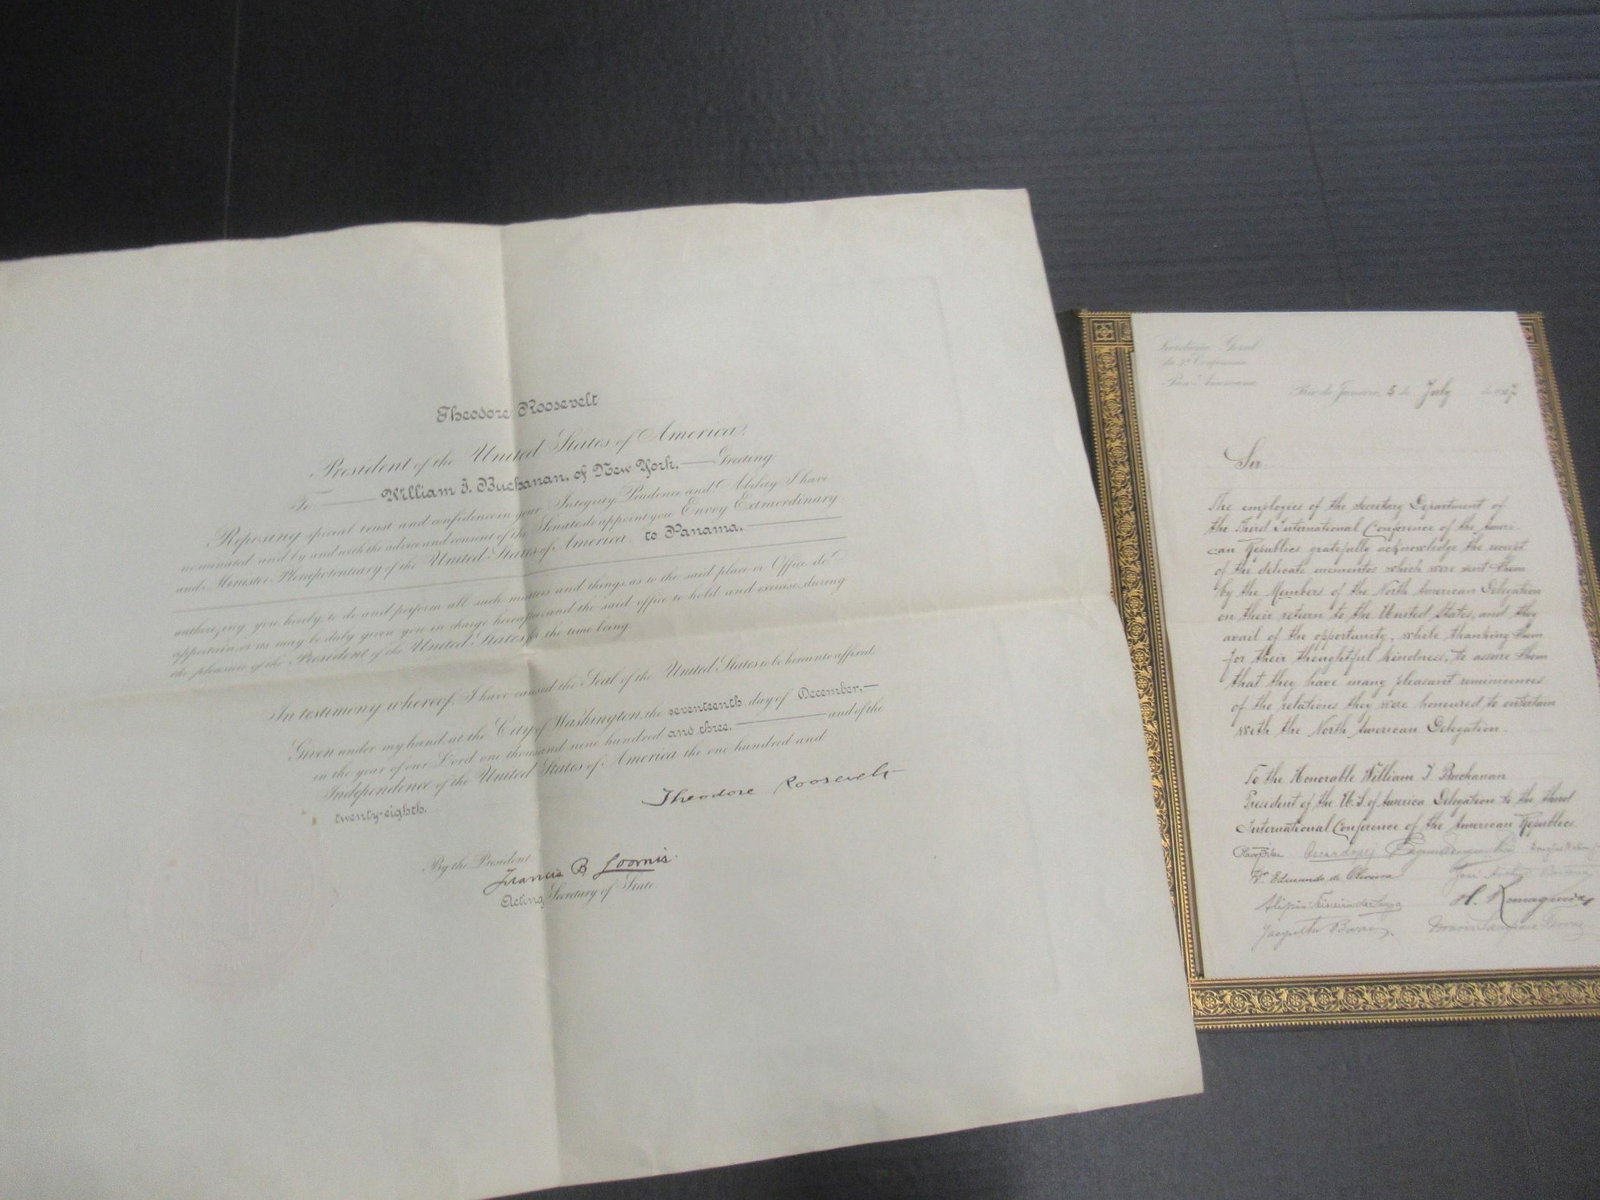 Theodore Roosevelt
President of the United States of America.
To William I. Buchanan, of New York, Greeting:
Reposing special trust and confidence in your Integrity, Prudence and Ability I have
nominated and by and with the advice and consent of the Senate do appoint you Envoy Extraordinary
and Minister Plenipotentiary of the United States of America to Panama,
authorizing you hereby to do and perform all such matters and things as to the said place or Office do
appertain or as may be duly given you in charge hereafter and the said office to hold and exercise during
the pleasure of the President of the United States for the time being.
In testimony whereof, I have caused the Seal of the United States to be hereunto affixed.
Given under my hand at the City of Washington, the seventeenth day of December,
in the year of our Lord one thousand nine hundred and three, and of the
Independence of the United States of America the one hundred and
twenty-eighth.
Theodore Roosevelt
By the President:
Francis B. Loomis
Acting Secretary of State.
Secretaria Geral
da 3ª Conferencia
Pan-Americana
Rio de Janeiro, 5 de July de 1907
Sir:
The employees of the Secretary Department of
the Third International Conference of the Ameri-
can Republics gratefully acknowledge the receipt
of the delicate mementos which were sent them
by the Members of the North American Delegation
on their return to the United States, and they
avail of the opportunity, while thanking them
for their thoughtful kindness, to assure them
that they have many pleasant reminiscences
of the relations they were honoured to entertain
with the North American Delegation.
To the Honorable William I Buchanan
President of the U. S. of America Delegation to the third
International Conference of the American Republics
Eduardo de Oliveira
H. Romaguera